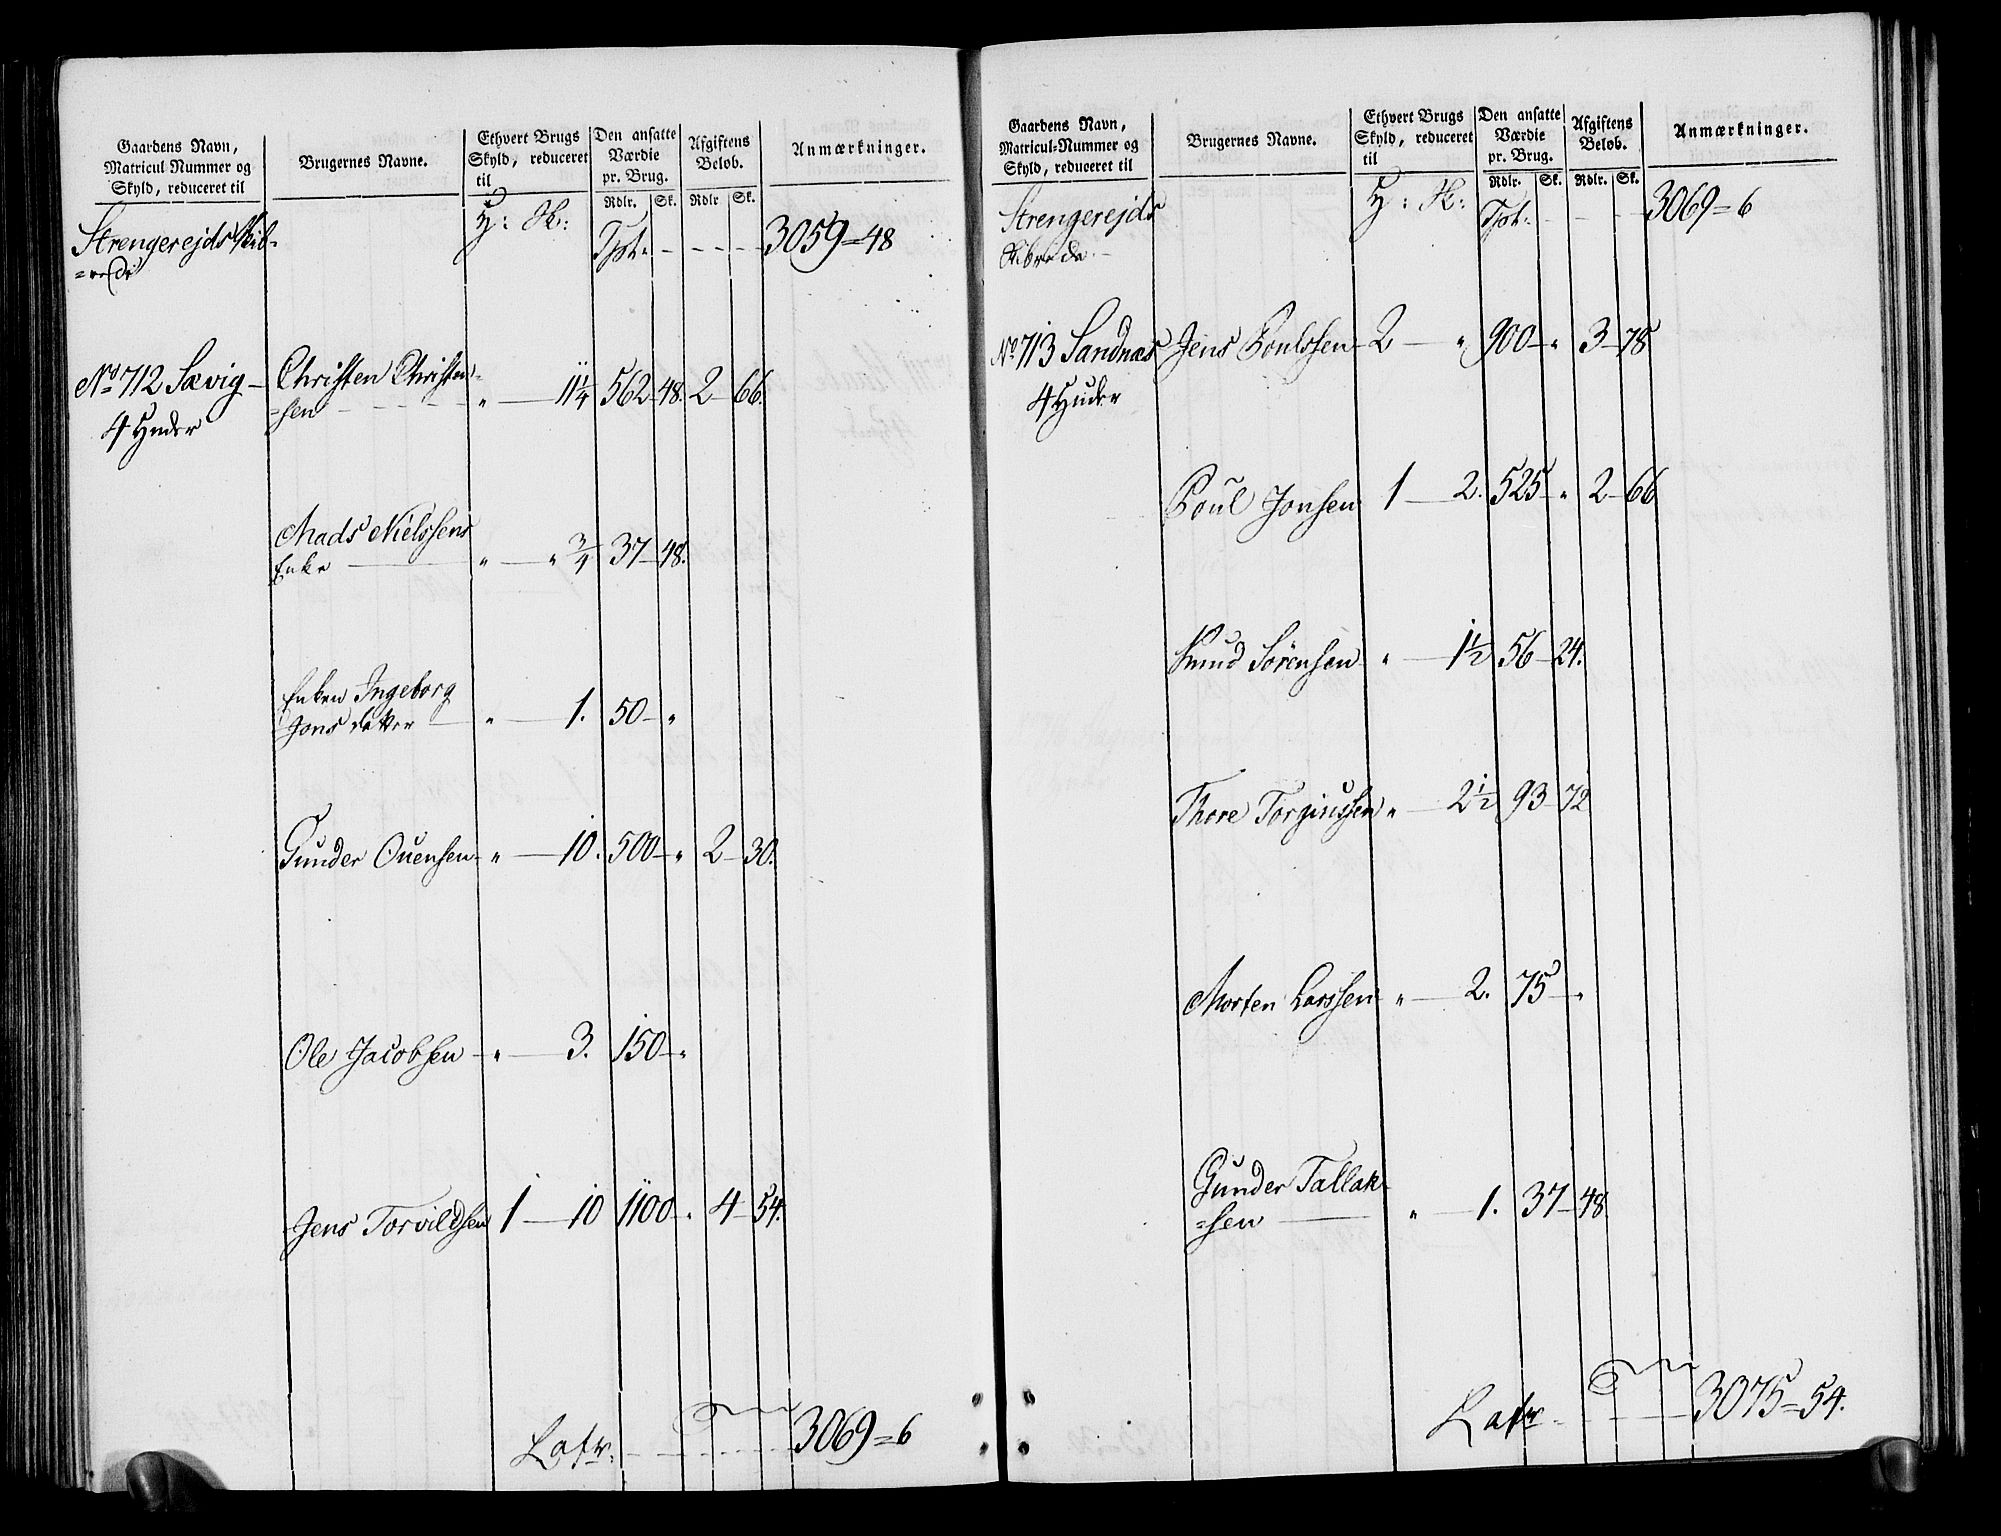 Gaardens Navn,
Matricul Nummer og
Skyld, reduceret til
Brugernes Navne.
Ethvert Brugs
Skyld, reduceret
til
Den ansatte
Værdie
pr. Brug.
Rdlr. Sk.
Afgiftens
Beløb.
Rdlr Sk.
Anmærkninger.
Strengerejds Skib-
=rede
H: Sk:
Tpt. - - - - 3059=48
No 712 Sævig -
4 Huder
Christen Christen-
=sen - - - - " — 11 1/4 562-48. 2-66.
Mads Nielssens
Enke — " — " 3/4 37-48.
Enken Ingeborg
Jons datter — " — 1. 50-"
Gunder Ouensen - " — 10. 500-" 2-30.
Ole Jacobsen - " — 3. 150-"
Jens Torvildsen 1 — 10 1100-" 4-54.
Latr: - - - - 3069=6
Gaardens Navn,
Matricul-Nummer og
Skyld, reduceret til
Brugernes Navne.
Ethvert Brugs
Skyld, reduceret
til
Den ansatte
Værdie
pr. Brug.
Rdlr. Sk.
Afgiftens
Beløb.
Rdlr. Sk.
Anmærkninger.
Strengerejds
Skibrede -
H: Sk:
Tpt. - - - - 3069=6
No 713 Sandnæs
4 Huder
Jens Poulssen - 2 — " 900-" 3-78
Poul Jonsen 1 — 2. 525-" 2-66
Knud Sørensen " — 1 1/2 56-24.
Thore Torginssen " — 2 1/2 93-72
Morten Larssen - " — 2. 75-"
Gunder Tallak-
=sen — " — 1. 37-48.
Latr - - - - 3075=54.